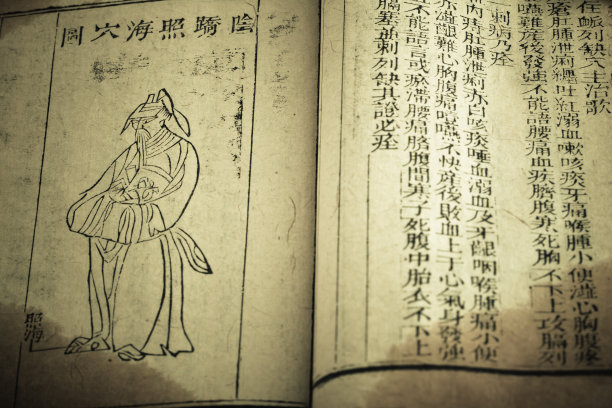 陰蹻照海穴圖
照海
在衇列缺穴主治歌
瘧肛腫泄痢纏吐紅溺血嗽咳痰牙痛喉腫小便澀心胸腹疼
噎難產後發強不能語腰痛血疾臍腹寒死胸不下上攻膈列
刺病乃痊
內痔肛腫泄痢赤白咳痰唾血溺血及牙齦咽喉腫痛小便
赤澀艱難心胸腹痛噎嚥不快產後敗血上于心氣身發強
不能語言或瘀滯腰痛臍腹間寒子死腹中胎衣不下上
膈塞並刺列缺其證必痊